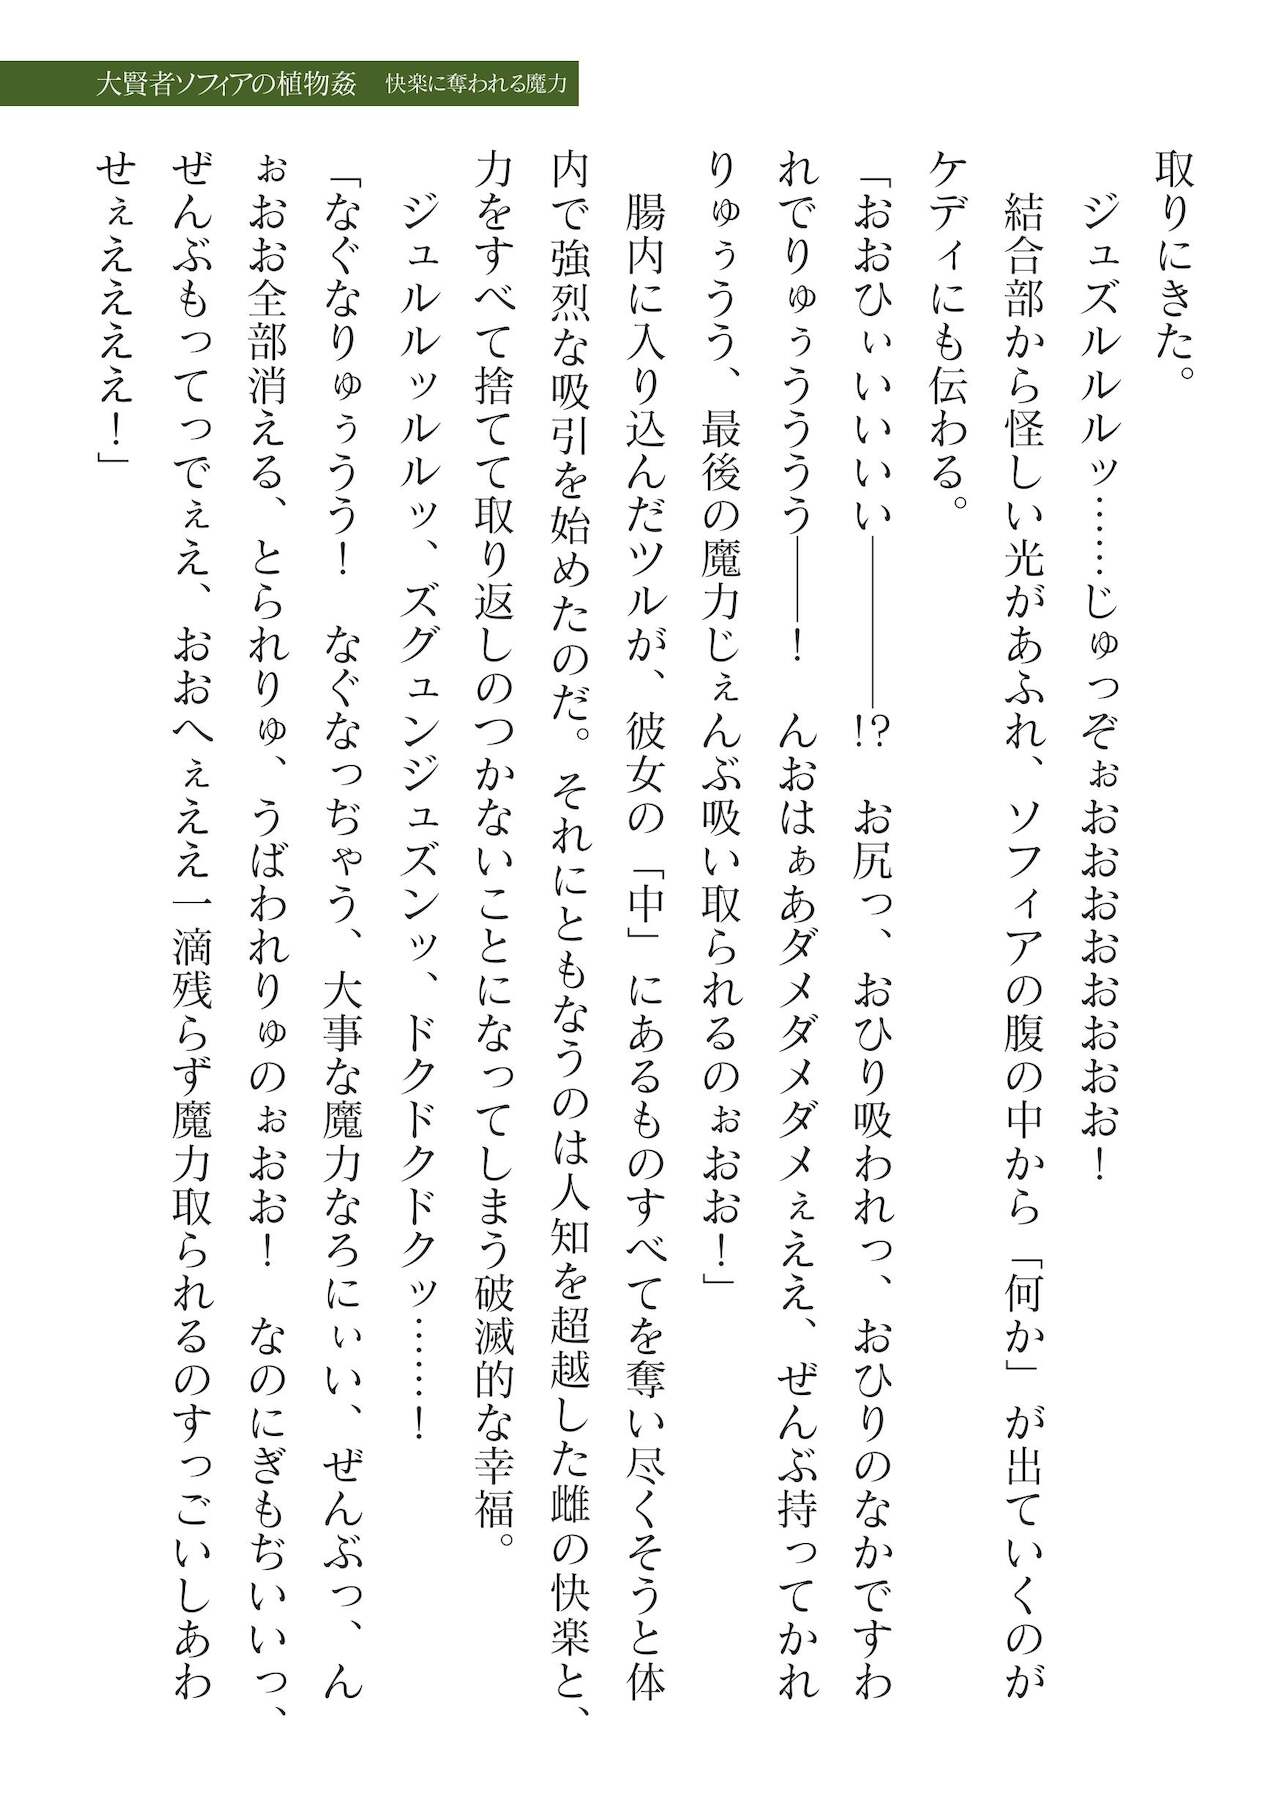 大賢者ソフィアの植物姦　快楽に奪われる魔力
取りにきた。
　ジュズルルルッ……じゅっぞぉおおおおおおおお！
　結合部から怪しい光があふれ、ソフィアの腹の中から「何か」が出ていくのが
ケディにも伝わる。
「おおひぃいいいい――――!?　お尻っ、おひり吸われっ、おひりのなかですわ
れでりゅぅうううう――！　んおはぁあダメダメダメぇええ、ぜんぶ持ってかれ
りゅぅうう、最後の魔力じぇんぶ吸い取られるのぉおお！」
　腸内に入り込んだツルが、彼女の「中」にあるものすべてを奪い尽くそうと体
内で強烈な吸引を始めたのだ。それにともなうのは人知を超越した雌の快楽と、
力をすべて捨てて取り返しのつかないことになってしまう破滅的な幸福。
　ジュルルルッルルッ、ズグュンジュズンッ、ドクドクドクッ……！
「なぐなりゅぅうう！　なぐなっぢゃう、大事な魔力なろにぃい、ぜんぶっ、ん
ぉおお全部消える、とられりゅ、うばわれりゅのぉおお！　なのにぎもぢいいっ、
ぜんぶもってっでぇえ、おおへぇええ一滴残らず魔力取られるのすっごいしあわ
せぇええええ！」